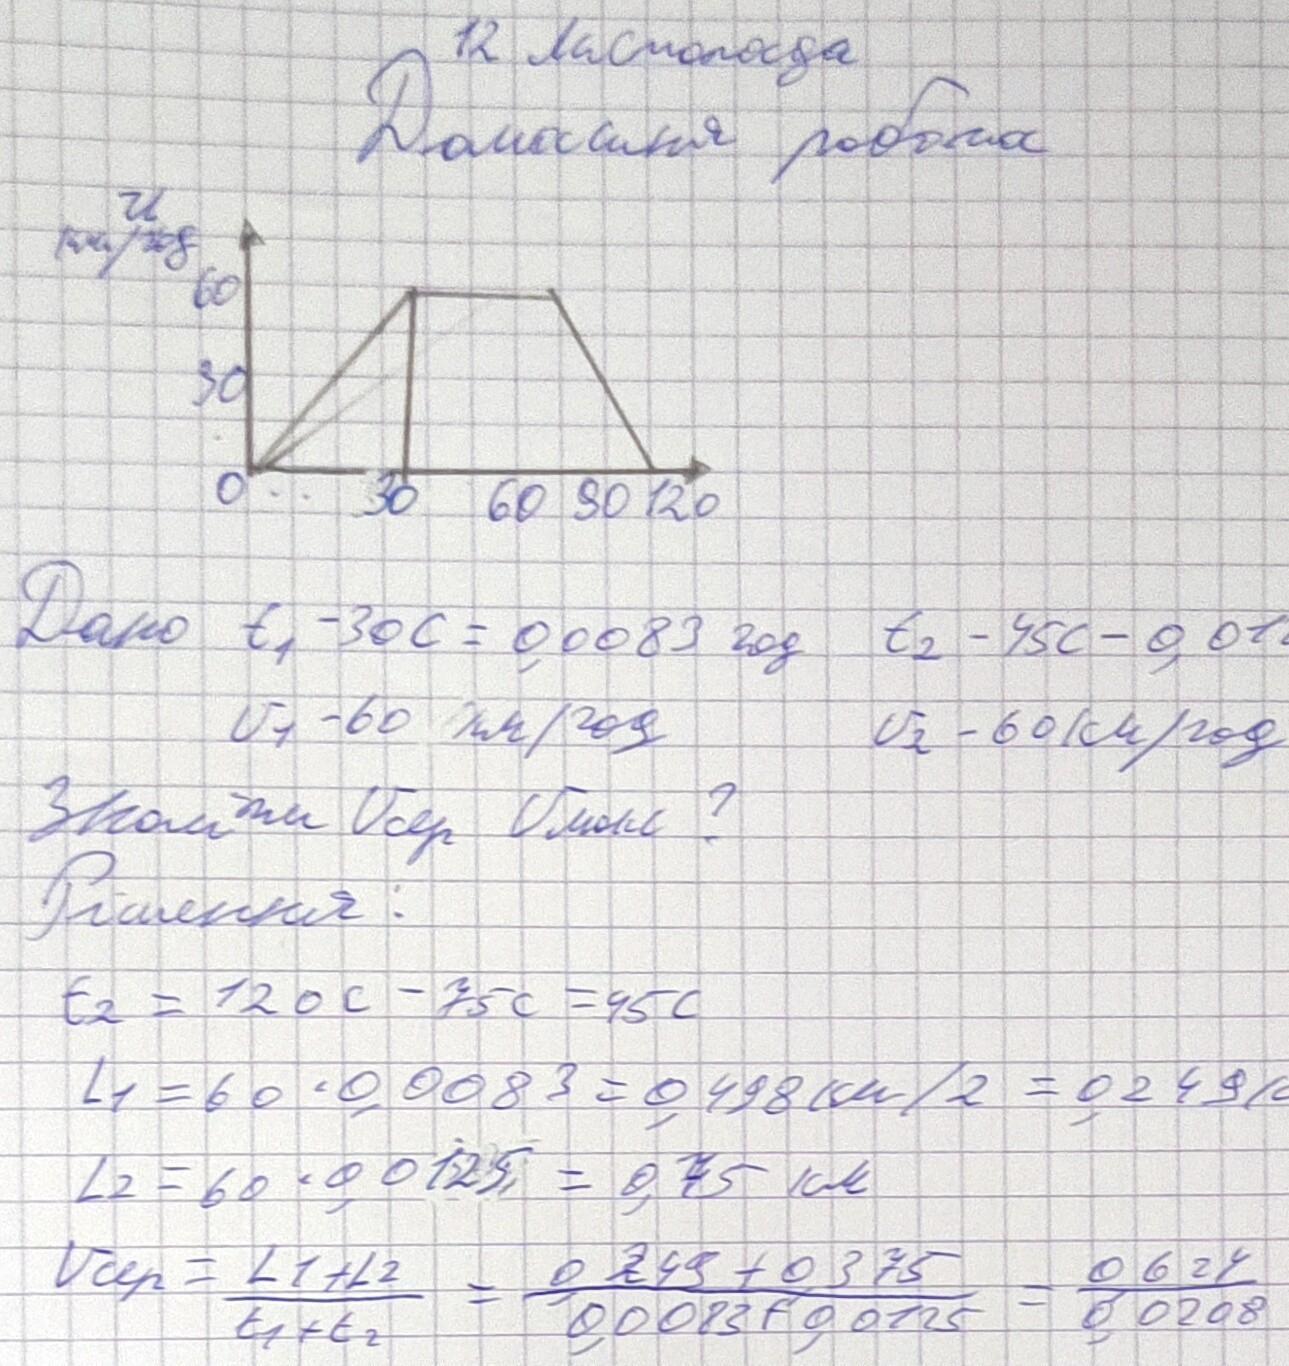 12 листопада
Домашня робота
υ
км/год
60
30
0 30 60 90 120
Дано t1 - 30С = 0,0083 год t2 - 45С - 0,012
υ1 - 60 км/год υ2 - 60 км/год
Знайти υсер υмакс ?
Рішення:
t2 = 120С - 75С = 45С
L1 = 60 · 0,0083 = 0,498 км/2 = 0,249 к
L2 = 60 · 0,0125 = 0,75 км
υсер = L1+L2 / t1+t2 = 0,249 + 0,375 / 0,0083 + 0,0125 = 0,624 / 0,0208